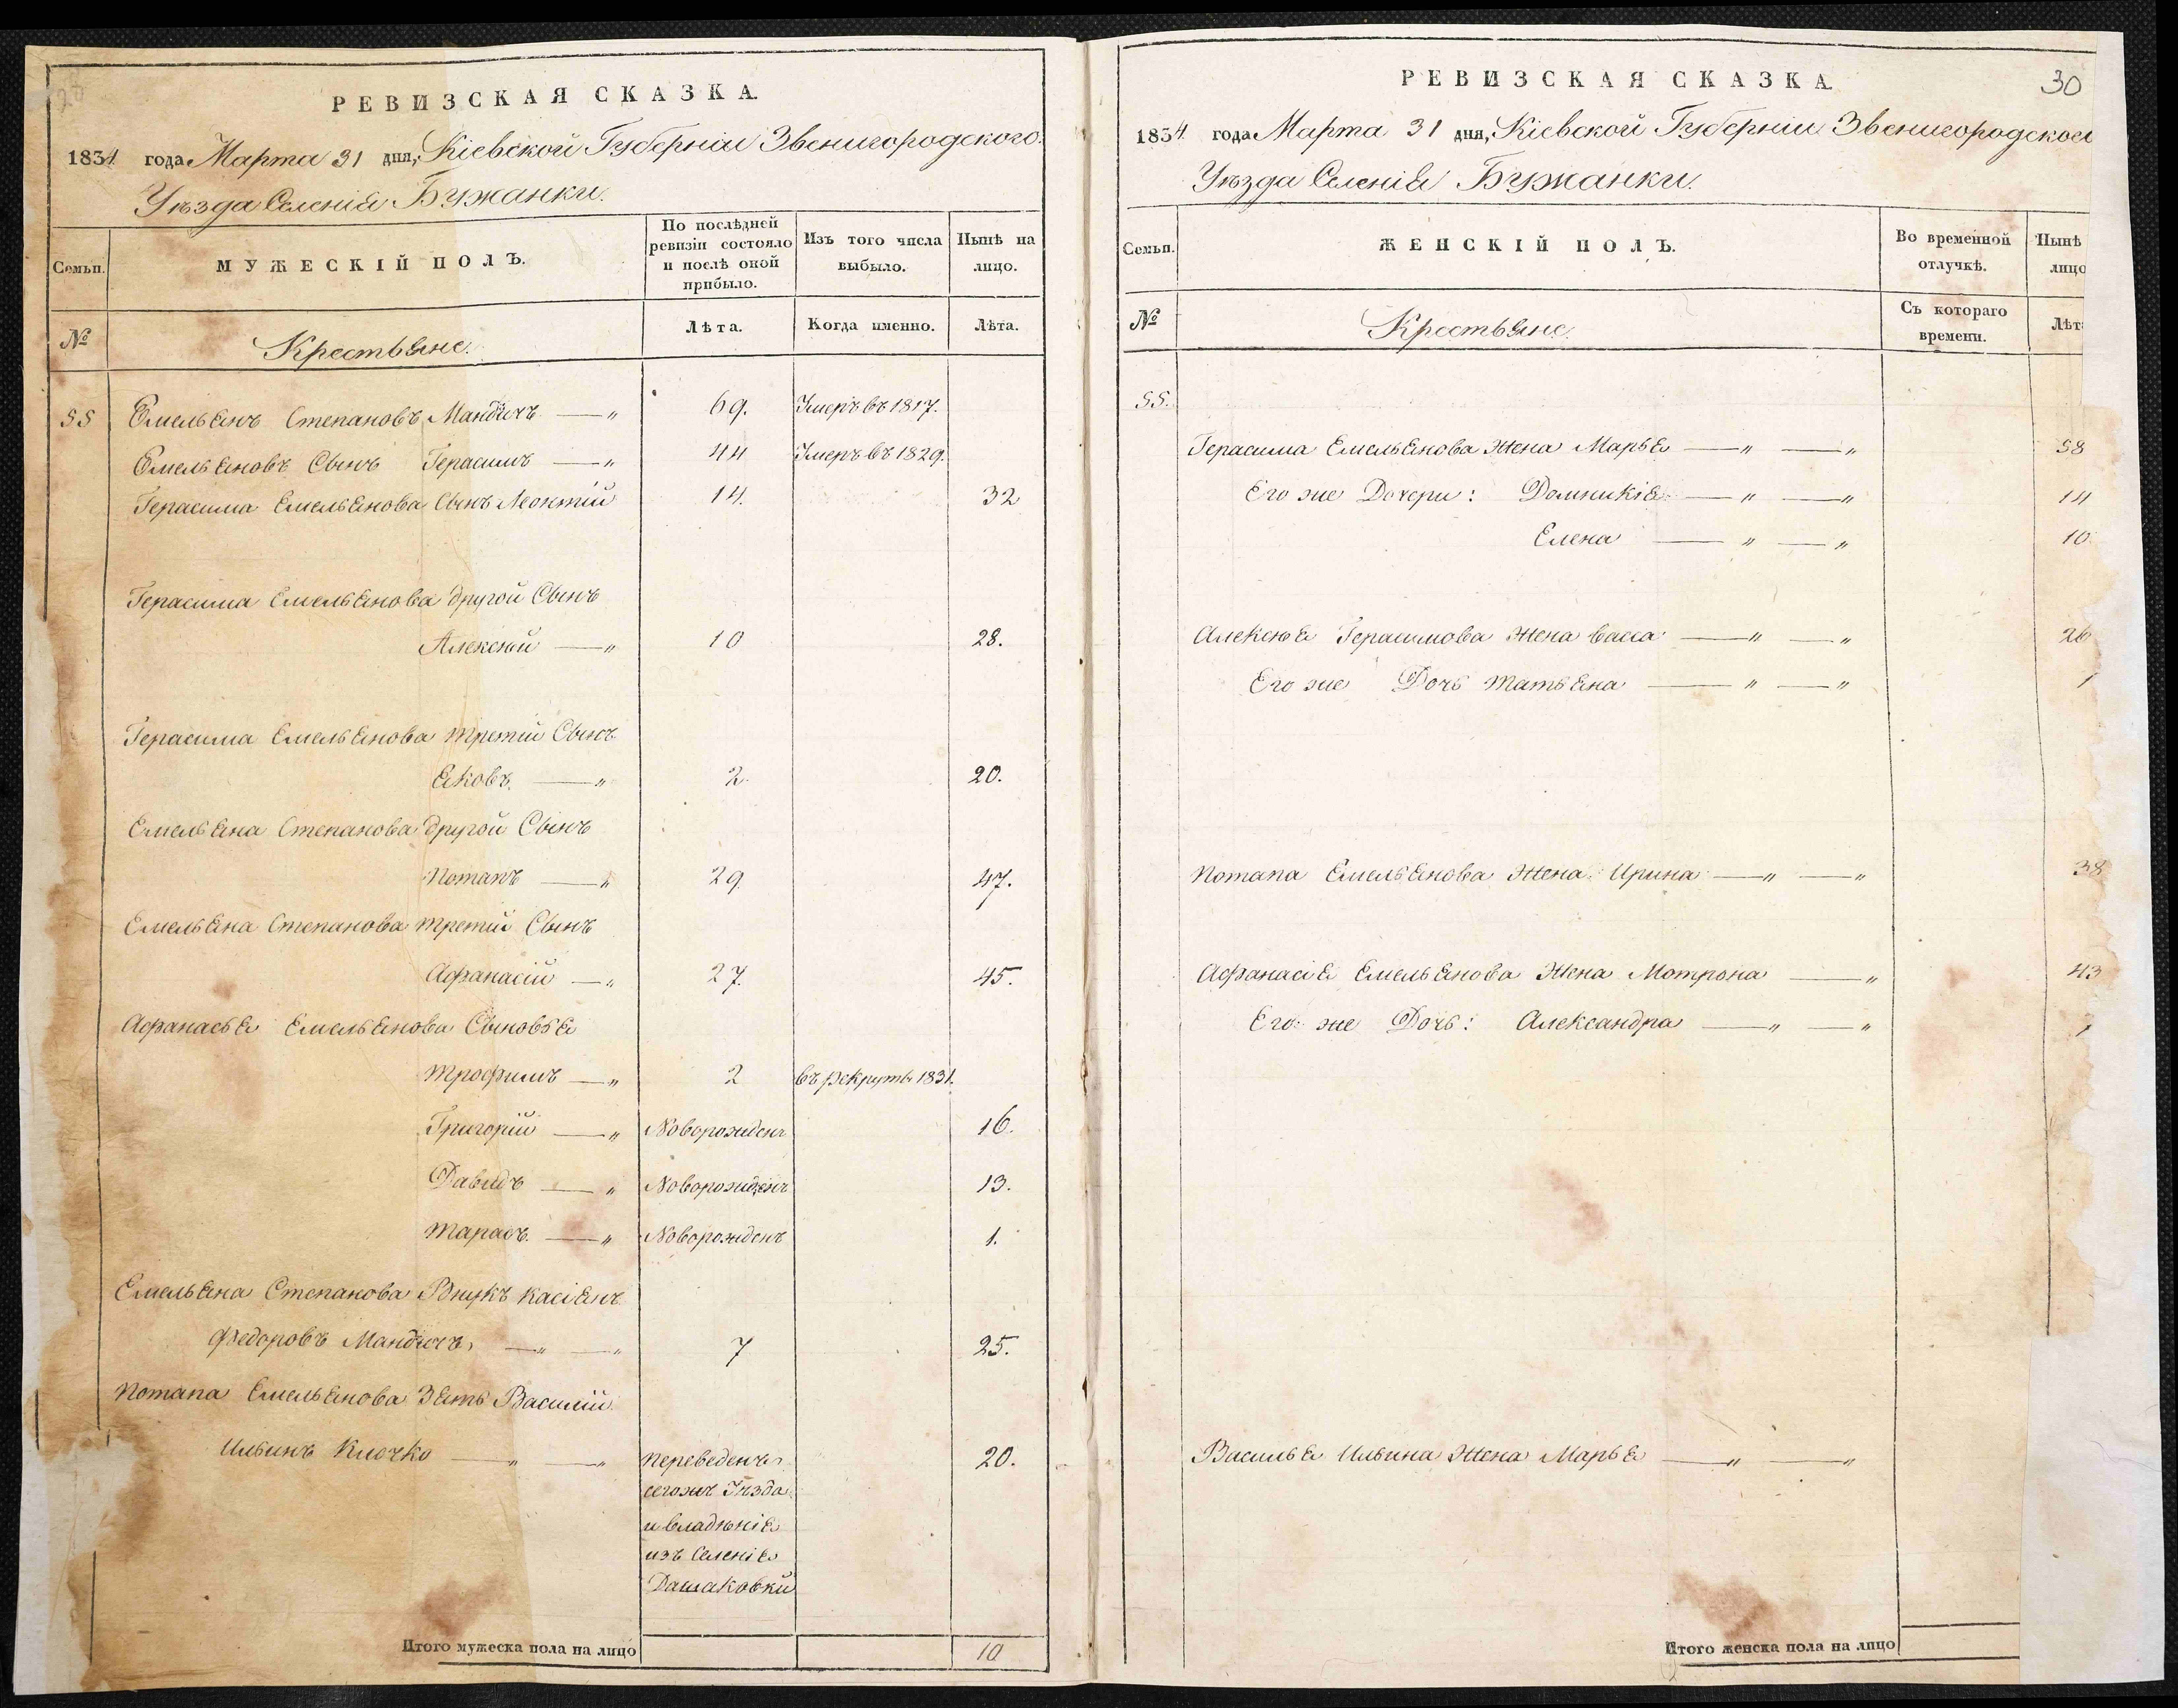 28
РЕВИЗСКАЯ СКАЗКА
1834 года Марта 31 дня, Кіевской Губерніи Звенигородского
Уѣзда Селенія Бужанки.
Семьи.
МУЖЕСКІЙ ПОЛЪ.
По послѣдней ревизіи состояло и послѣ оной прибыло.
Изъ того числа выбыло.
Нынѣ на лицо.
№
Крестьяне.
Лѣта.
Когда именно.
Лѣта.
55 Емельянъ Степановъ Мандичъ — " 69. Умеръ въ 1817.
Емельяновъ Сынъ Герасимъ — " 44 Умеръ въ 1829.
Герасима Емельянова Сынъ Леонтій 14. 32
Герасима Емельянова другой Сынъ
Алексѣй — " 10 28.
Герасима Емельянова третій Сынъ
Яковъ — " 2. 20.
Емельяна Степанова другой Сынъ
Потапъ — " 29 47.
Емельяна Степанова третій Сынъ
Афанасій — " 27. 45.
Афанасья Емельянова Сыновья
Трофимъ — " 2 въ рекруты 1831.
Григорій — " Новорожденъ 16.
Давидъ — " Новорожденъ 13.
Тарасъ — " Новорожденъ 1.
Емельяна Степанова Внукъ Касіянъ
Федоровъ Мандичъ — " — " 7 25.
Потапа Емельянова Зять Василій
Ильинъ Клочко — " — " Переведенъ 20.
сегожъ Уѣзда
и владѣнія
изъ Селенія
Дашаковки
Итого мужеска пола на лицо 10
30
РЕВИЗСКАЯ СКАЗКА
1834 года Марта 31 дня, Кіевской Губерніи Звенигородского
Уѣзда Селенія Бужанки.
Семьи.
ЖЕНСКІЙ ПОЛЪ.
Во временной отлучкѣ.
Нынѣ лицо
№
Крестьяне.
Съ котораго времени.
Лѣт
55.
Герасима Емельянова Жена Марья — " — " 58
Его же Дочери: Домникія — " — " 14
Елена — " — " 10.
Алексѣя Герасимова Жена Васса — " — " 26
Его же Дочь Татьяна — " — " 1
Потапа Емельянова Жена Ирина — " — " 38
Афанасія Емельянова Жена Мотрона — " 43
Его же Дочь: Александра — " — " 1
Василья Ильина Жена Марья — " — "
Итого женска пола на лицо